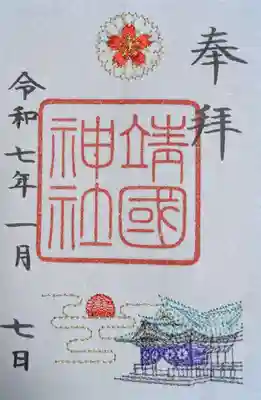 奉拝
靖國神社
令和七年一月七日